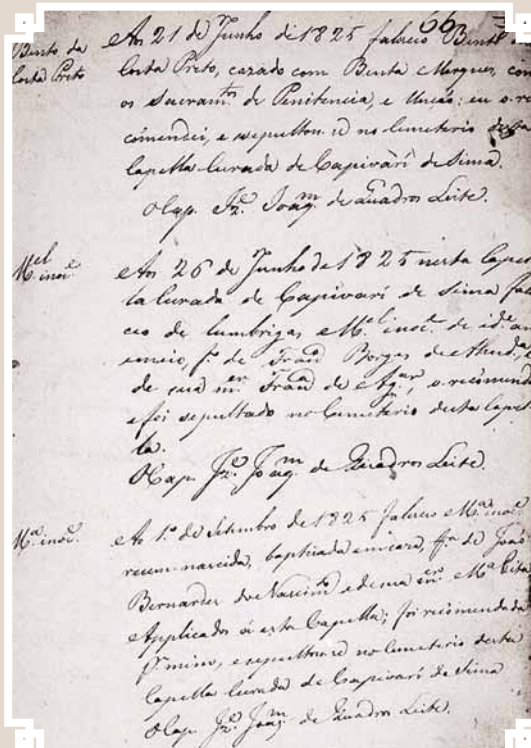 66
Bento da
Costa Preto
Aos 21 de Junho de 1825 faleceo Bento da
Costa Preto, cazado com Benta Marques, com
os Sacramtos. de Penitencia, e Unção: eu o re
comendei, e sepultou-se no Cemeterio desta
Capella Curada de Capivarí de Sima.
O Cap. Je. Joaqm. de Quadros Leite.
Mel
inoce.
Aos 26 de Junho de 1825 nesta Capel
la Curada de Capivarí de Sima fale
ceo de lumbrigas Mel. inoce. de ide. de
anno e meio, fo. de Franco Borges de
de sua mer. Franca de o recomendei
e foi sepultado no Cemeterio desta Capel
la.
O Cap. Je. Joaqm. de Quadros Leite.
Ma. inoce.
Ao 1o. de Setembro de 1825 faleceo Ma. inoce.
recem-nascida, baptizada em caza, fa. de João
Bernardes do Nascimto. e de sua mer. Ma. Rita
Applicados á esta Capella; foi recomendada
pr. mim, e sepultou-se no Cemeterio desta
Capella Curada de Capivarí de Sima
O Cap. Je. Joaqm. de Quadros Leite.